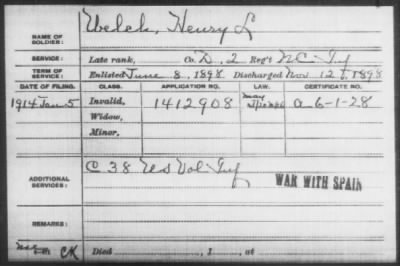 NAME OF SOLDIER: Welch, Henry L
SERVICE: Late rank, Co. D, 2 Reg't NC Inf
TERM OF SERVICE: Enlisted June 8, 1898 Discharged Nov. 12, 1898
DATE OF FILING. CLASS. APPLICATION NO. LAW. CERTIFICATE NO.
1914 Jan 5 Invalid, 1412908 A-6-1-28
Widow,
Minor,
ADDITIONAL SERVICES: C 38 US Vol Inf
WAR WITH SPAIN
REMARKS:
CK Died , 1 , at